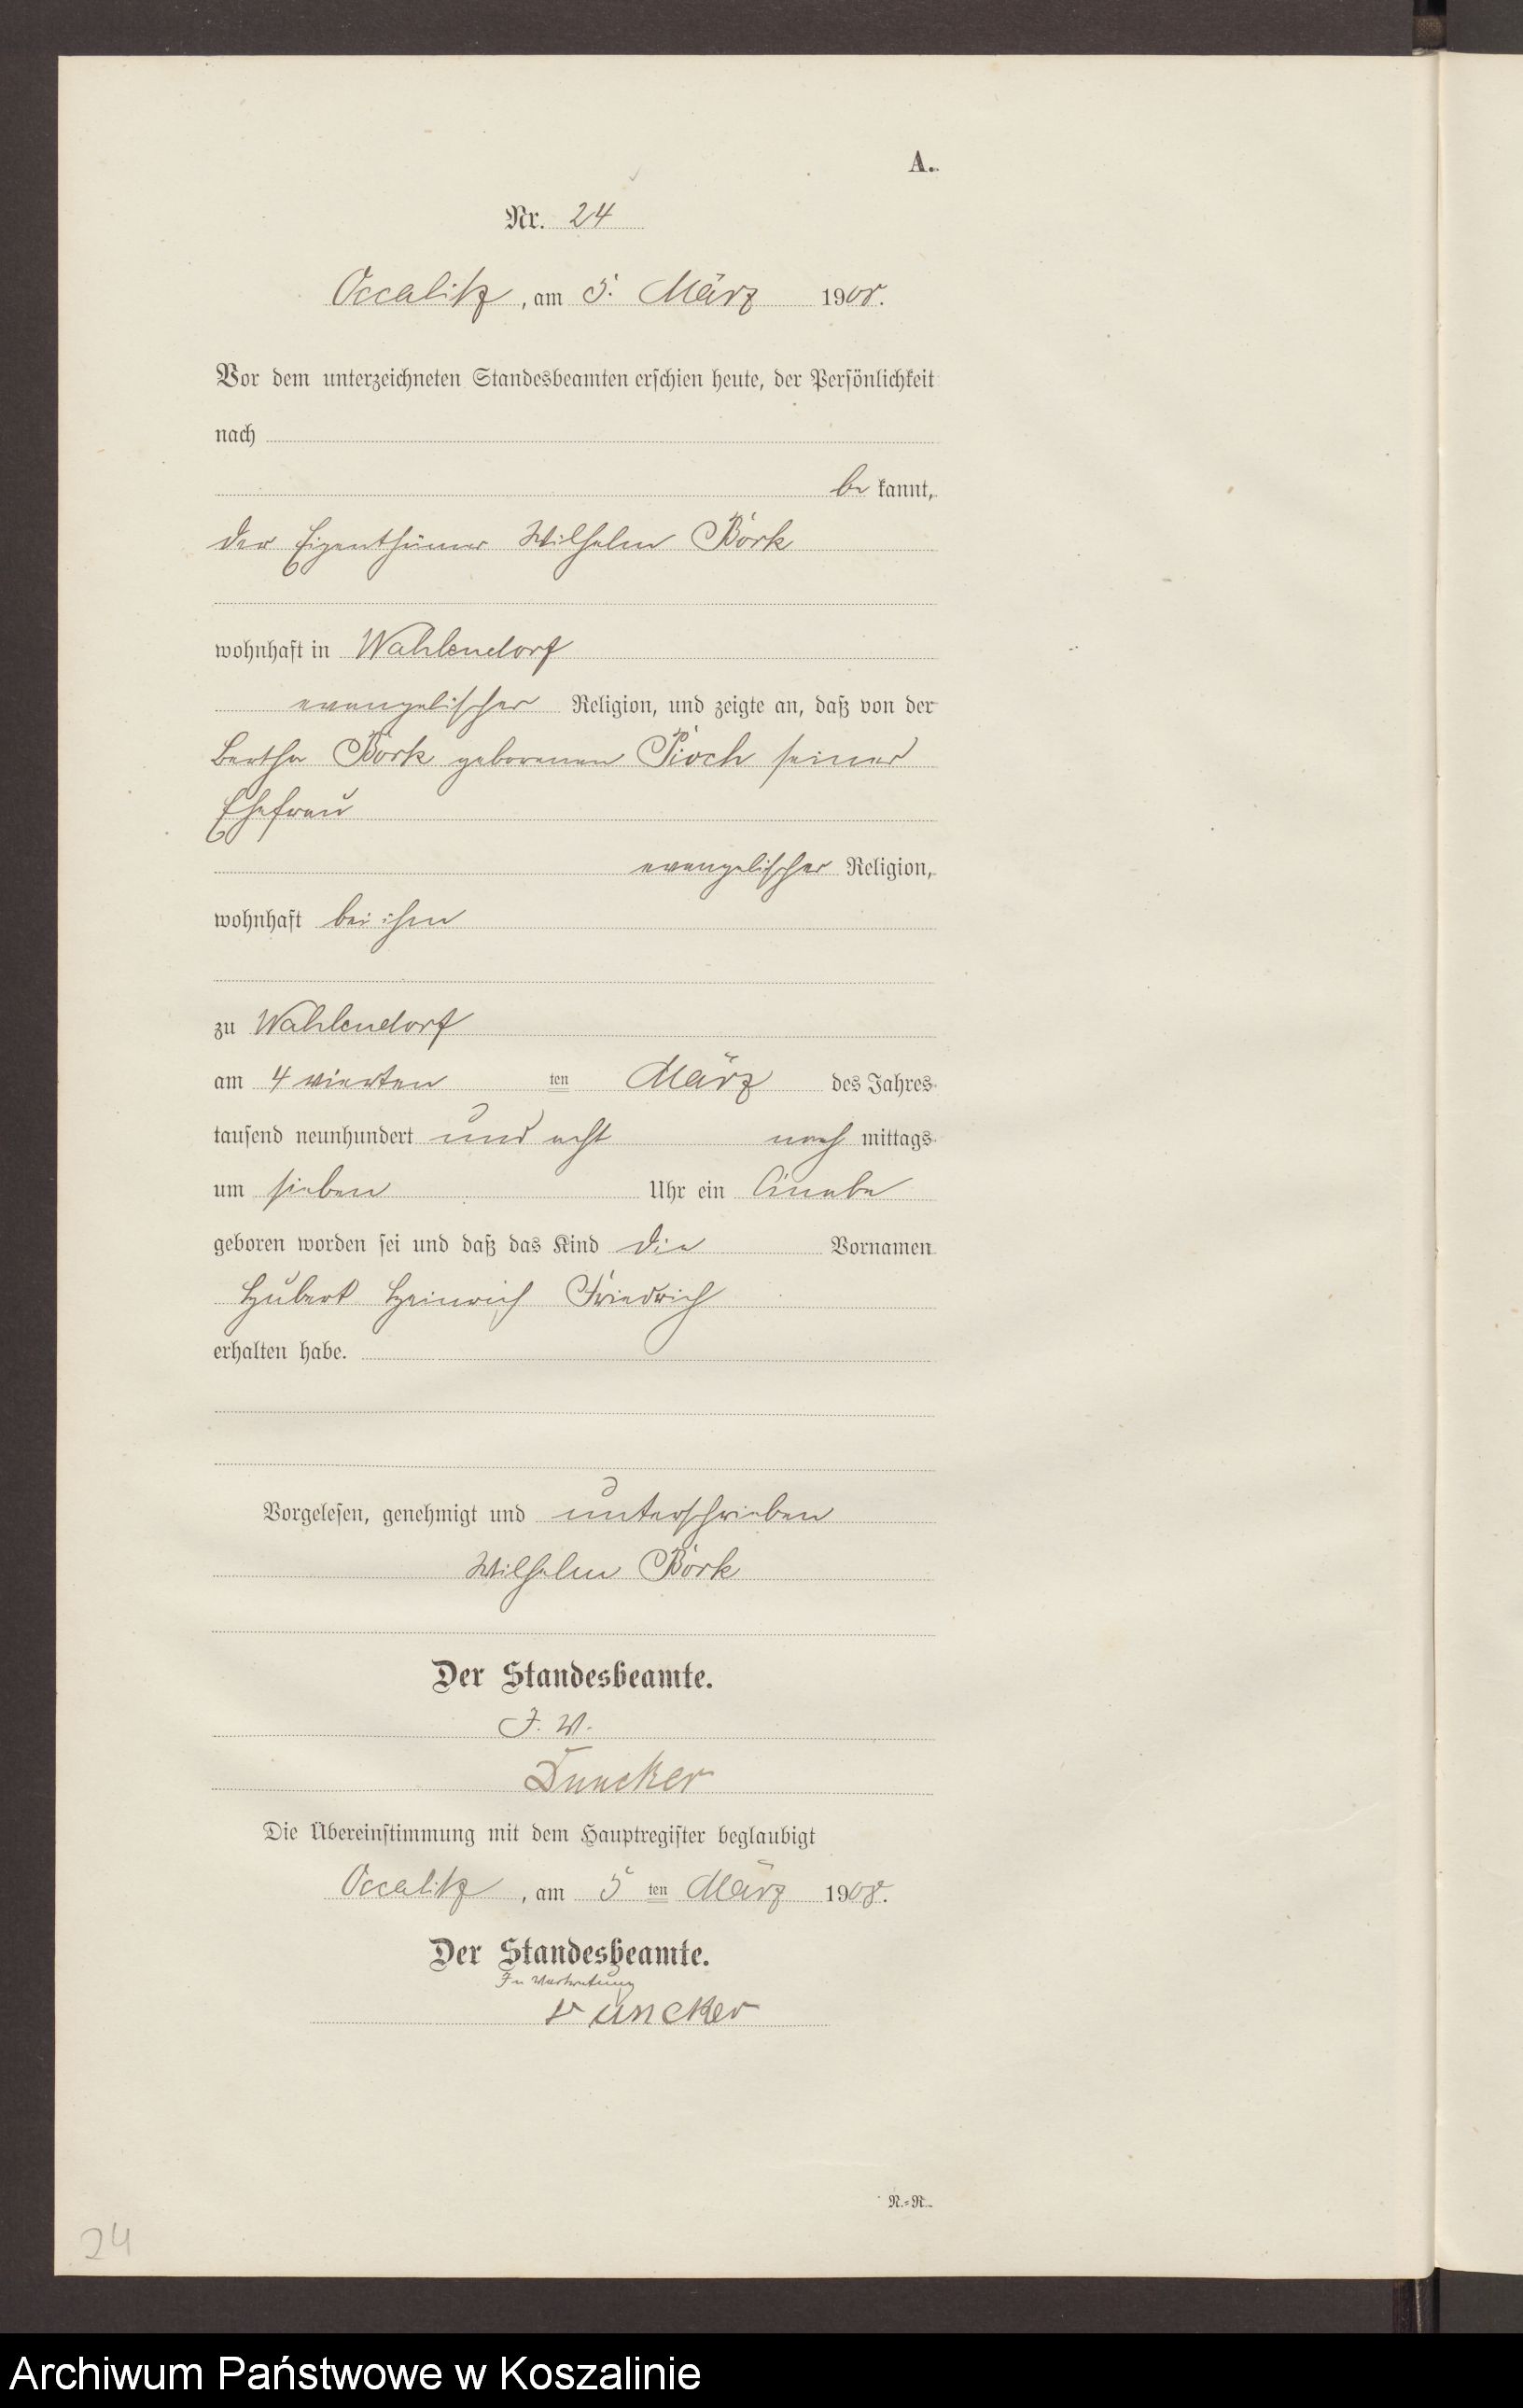 A.
Nr. 24
Occalitz, am 5. März 1908.
Vor dem unterzeichneten Standesbeamten erschien heute, der Persönlichkeit
nach
be kannt,
der Eigenthümer Wilhelm Bork
wohnhaft in Wahlendorf
evangelischer Religion, und zeigte an, daß von der
Bertha Bork geborenen Pioch seiner
Ehefrau
evangelischer Religion,
wohnhaft bei ihm
zu Wahlendorf
am 4 vierten ten März des Jahres
tausend neunhundert und acht nach mittags
um sieben Uhr ein Knabe
geboren worden sei und daß das Kind die Vornamen
Hubert Heinrich Friedrich
erhalten habe.
Vorgelesen, genehmigt und unterschrieben
Wilhelm Bork
Der Standesbeamte.
J. V.
Duncker
Die Übereinstimmung mit dem Hauptregister beglaubigt
Occalitz, am 5 ten März 1908.
Der Standesbeamte.
In Vertretung
Duncker
N.=R.
24
Archiwum Państwowe w Koszalinie